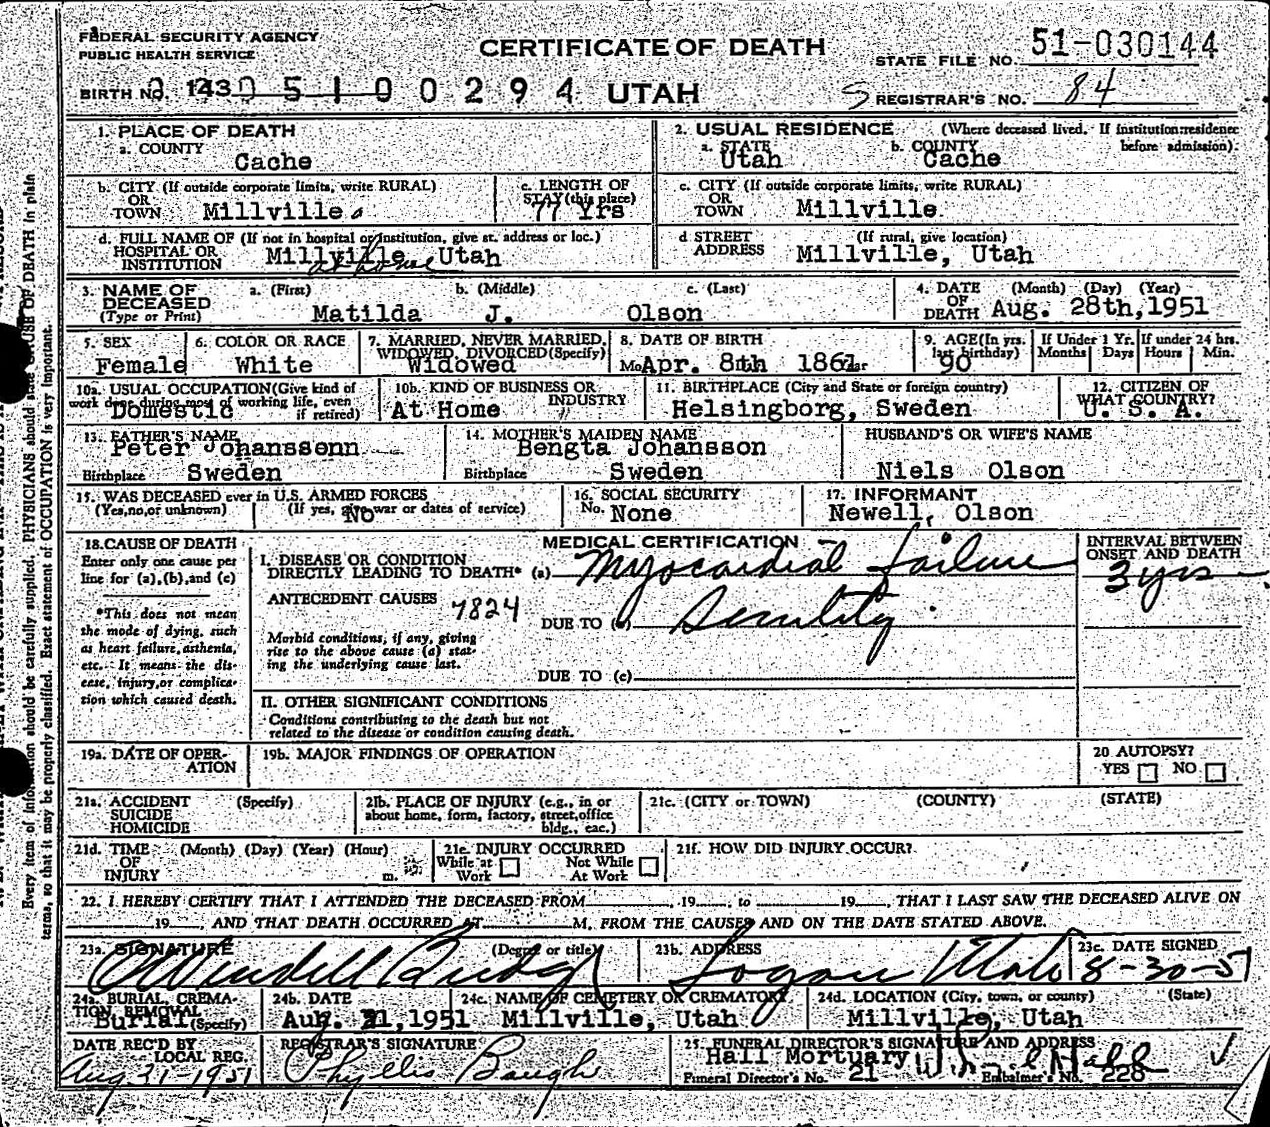 FEDERAL SECURITY AGENCY
PUBLIC HEALTH SERVICE
CERTIFICATE OF DEATH
STATE FILE NO. 51-030144
BIRTH NO. 143 0 5 1 0 0 2 9 4 UTAH
REGISTRAR'S NO. 84
1. PLACE OF DEATH
a. COUNTY
Cache
2. USUAL RESIDENCE (Where deceased lived. If institution:residence before admission).
a. STATE Utah b. COUNTY Cache
b. CITY (If outside corporate limits, write RURAL)
OR
TOWN Millville
c. LENGTH OF
STAY (this place)
77 Yrs
c. CITY (If outside corporate limits, write RURAL)
OR
TOWN Millville
d. FULL NAME OF (If not in hospital or institution, give st. address or loc.)
HOSPITAL OR
INSTITUTION Millville Utah
at home
d STREET (If rural, give location)
ADDRESS Millville, Utah
3. NAME OF DECEASED
(Type or Print)
a. (First) b. (Middle) c. (Last)
Matilda J. Olson
4. DATE (Month) (Day) (Year)
OF
DEATH Aug. 28th,1951
5. SEX
Female
6. COLOR OR RACE
White
7. MARRIED, NEVER MARRIED,
WIDOWED, DIVORCED(Specify)
Widowed
8. DATE OF BIRTH
Apr. 8th 1861
9. AGE(In yrs. last birthday)
90
If Under 1 Yr. Months Days
If under 24 hrs. Hours Min.
10a. USUAL OCCUPATION(Give kind of
work done during most of working life, even
if retired)
Domestic
10b. KIND OF BUSINESS OR
INDUSTRY
At Home "
11. BIRTHPLACE (City and State or foreign country)
Helsingborg, Sweden
12. CITIZEN OF
WHAT COUNTRY?
U. S. A.
13. FATHER'S NAME
Peter Johanssonn
Birthplace Sweden
14. MOTHER'S MAIDEN NAME
Bengta Johansson
Birthplace Sweden
HUSBAND'S OR WIFE'S NAME
Niels Olson
15. WAS DECEASED ever in U.S. ARMED FORCES
(Yes,no,or unknown) (If yes, give war or dates of service)
No
16. SOCIAL SECURITY
No. None
17. INFORMANT
Newell, Olson
18. CAUSE OF DEATH
Enter only one cause per
line for (a),(b),and (c)
*This does not mean
the mode of dying, such
as heart failure, asthenia,
etc. It means the dis-
ease, injury,or complica-
tion which caused death.
MEDICAL CERTIFICATION
I. DISEASE OR CONDITION
DIRECTLY LEADING TO DEATH* (a) Myocardial failure
ANTECEDENT CAUSES 7824
DUE TO (b) Senility
Morbid conditions, if any, giving
rise to the above cause (a) stat-
ing the underlying cause last.
DUE TO (c)
INTERVAL BETWEEN
ONSET AND DEATH
3 yrs
II. OTHER SIGNIFICANT CONDITIONS
Conditions contributing to the death but not
related to the disease or condition causing death.
19a. DATE OF OPER-
ATION
19b. MAJOR FINDINGS OF OPERATION
20 AUTOPSY?
YES NO
21a. ACCIDENT (Specify)
SUICIDE
HOMICIDE
21b. PLACE OF INJURY (e.g., in or
about home, form, factory, street,office
bldg., eac.)
21c. (CITY or TOWN) (COUNTY) (STATE)
21d. TIME (Month) (Day) (Year) (Hour)
OF
INJURY m.
21e. INJURY OCCURRED
While at Work Not While At Work
21f. HOW DID INJURY OCCUR?
22. I HEREBY CERTIFY THAT I ATTENDED THE DECEASED FROM , 19 , to 19 , THAT I LAST SAW THE DECEASED ALIVE ON
19 , AND THAT DEATH OCCURRED AT M. FROM THE CAUSES AND ON THE DATE STATED ABOVE.
23a. SIGNATURE (Degree or title)
Wendell Budge
23b. ADDRESS
Logan Utah
23c. DATE SIGNED
8-30-51
24a. BURIAL, CREMA-
TION, REMOVAL
Burial (Specify)
24b. DATE
Aug. 31,1951
24c. NAME OF CEMETERY OR CREMATORY
Millville, Utah
24d. LOCATION (City, town, or county) (State)
Millville, Utah
DATE REC'D BY
LOCAL REG.
Aug 31-1951
REGISTRAR'S SIGNATURE
Phyllis Baugh
25. FUNERAL DIRECTOR'S SIGNATURE AND ADDRESS
Hall Mortuary
Funeral Director's No. 21 Embalmer's No. 228
Every item of information should be carefully supplied. PHYSICIANS should state CAUSE OF DEATH in plain
terms, so that it may be properly classified. Exact statement of OCCUPATION is very important.